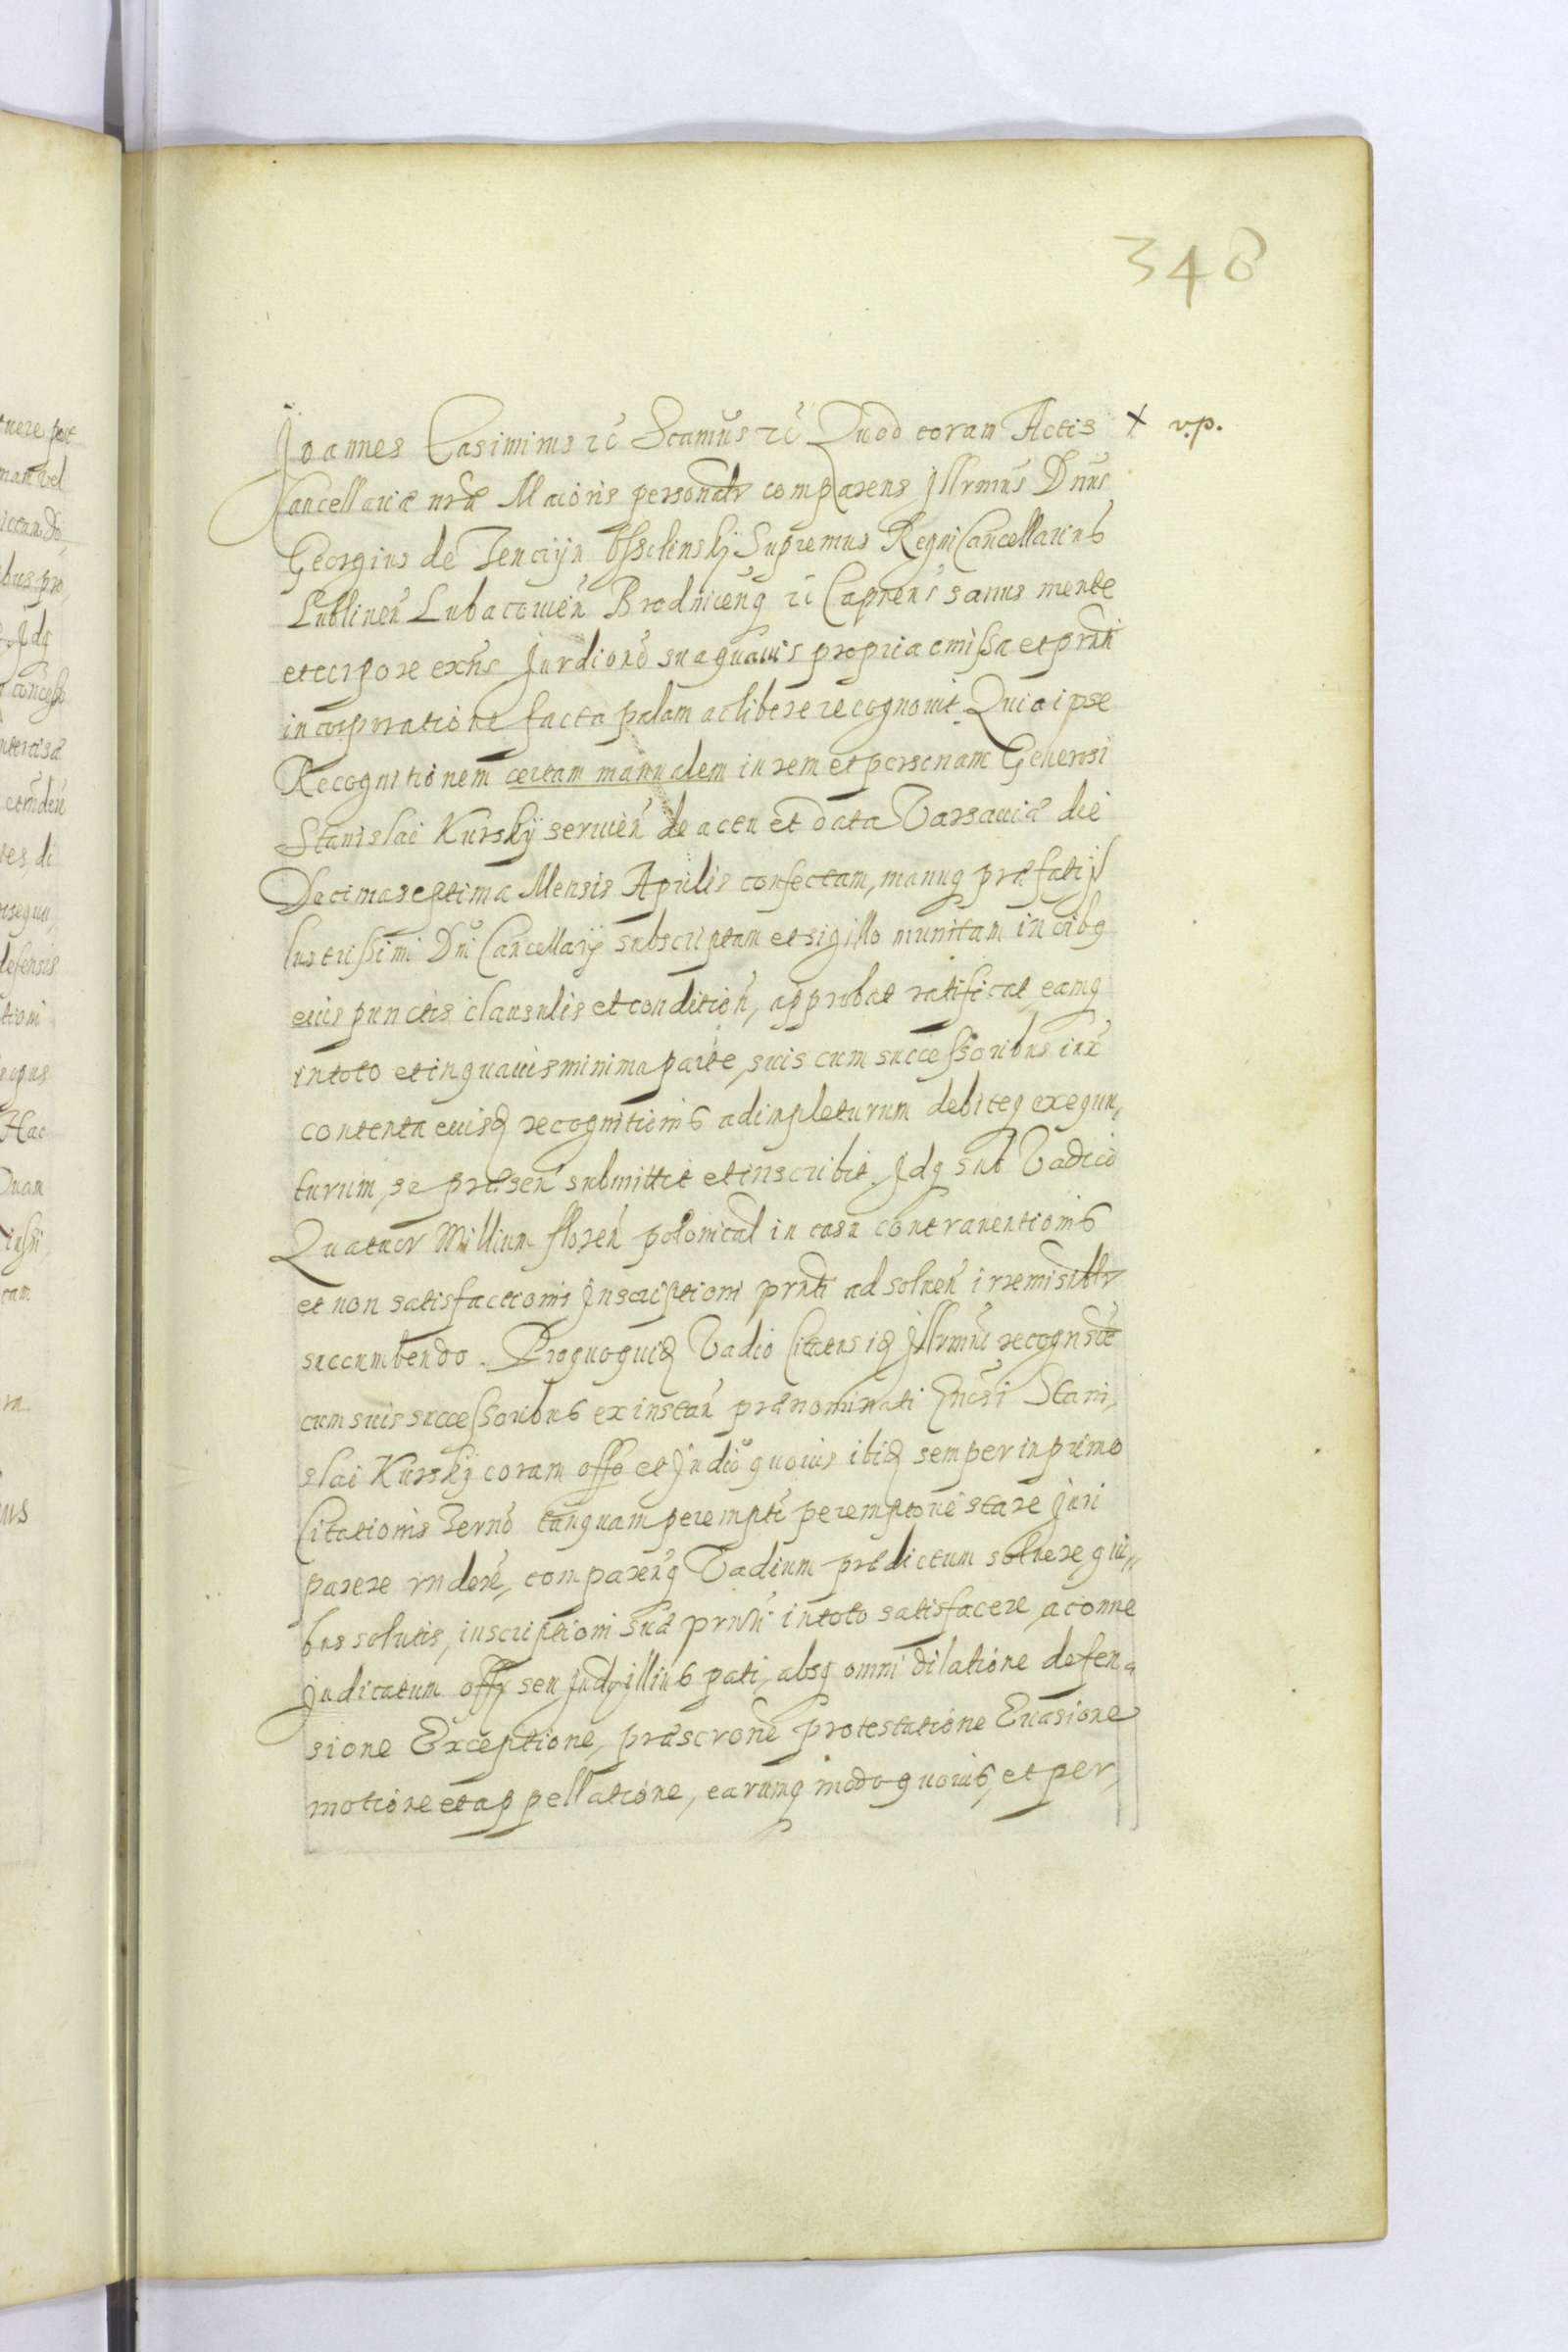 348
Joannes Casimirus rc̃ Scamũs rc̃ Quod coram Actis + v.p.
Cancellariæ nræ Maioris personalr comparens Jllrmũs Dnũs
Georgius de Tenczyn Ossolinskÿ Supremus Regni Cancellarius
Lublineñ Lubacovieñ Brodniceñq rc̃ Capneus sanus mente
et corpore exñs Jurdioñe suaquavis propria omissa et prñti
incorporatione facta palam ac libere recognovit. Quia ipse
Recognitionem certam manualem in rem et personam Generosi
Stanislai Kurskÿ servieñ de actu et data Varsaviæ die
Decimaseptima Mensis Aprilis confectam, manuq præfati Jl
lustrissimi Dñi Cancellarÿ subscriptam et sigillo munitam in oĩbq
eius punctis clausulis et conditioñ, approbat ratificat, eamq
in toto et in quavis minima parte, suis cum successoribus iux̃
contenta eiusd recognitionis adimpleturum debiteq exequu,
turum, se præseñ submittit et inscribit. Jdq sub Vadio
Quatuor Millium floreñ polonical in casu contraventionis
et non satisfactionis Jnscriptioni prñti ad solveñ irremisiblr
succumbendo. Pro quo quid Vadio Citatus id Jllrmũs recognsce
cum suis successoribus ex instañ prænominati Gnõsi Stani,
slai Kurskÿ coram offo et Judio quovis ibid semper in primo
Citationis Terño tanquam perempti peremptorie stare Juri
parere rndere, comparerq Vadium prædictum solvere, qui,,
bus solutis, inscriptioni suæ prñti in toto satisfacere, ac omne
Judicatum offy seu Judy illius pati, absq omni dilatione defen,
sione Exceptione, præscrone protestatione Evasione
motione et appellatione, earumq modo quovis, et per,